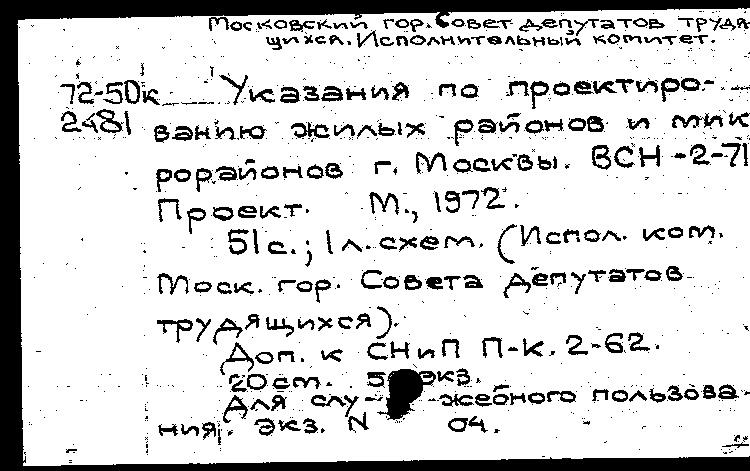 Московский гор. Совет депутатов трудя
щихся. Исполнительный комитет.
72-50к Указания по проектиро-
2481 ванию жилых районов и мик
рорайонов г. Москвы. ВСН-2-71
Проект. М., 1972.
51с.; 1 л. схем. (Испол. ком.
Моск. гор. Совета депутатов
трудящихся).
Доп. к СНиП П-К. 2-62.
20 см. экз.
Для слу- -жебного пользова-
ния. Экз. N 04.